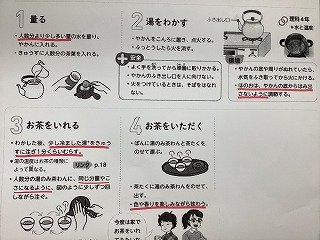 1 量る
・人数分より少し多い量の水を量り、
やかんに入れる。
・きゅうすに人数分の茶葉を入れる。
2 湯をわかす
・やかんをこんろに置き、点火する。
・ふっとうしたら火を消す。
安全
・よく手を洗ってから準備に取りかかる。
・やかんのふき出し口を人に向けない。
・火をつけているときは、そばをはなれ
ない。
ふき出し口
理科4年
・水と温度
・やかんの底や周りがぬれていたら、
水気をふき取ってから火にかける。
・ほのおは、やかんの底からはみ出
さないように調節する。
3 お茶をいれる
・わかした後、少し冷ました湯をきゅう
すに注ぎ1分くらいむらす。
♥湯の温度はお茶の種類に
よって異なる。
リンク p.18
・人数分の湯のみ茶わんに、同じ分量やこ
さになるように、図のように少しずつ回
しながら注ぐ。
4 お茶をいただく
・ぼんに湯のみ茶わんと茶たくを
のせて運ぶ。
・茶たくに湯のみ茶わんをのせて、
出す。
・色や香りを楽しみながら味わう。
今度は家で